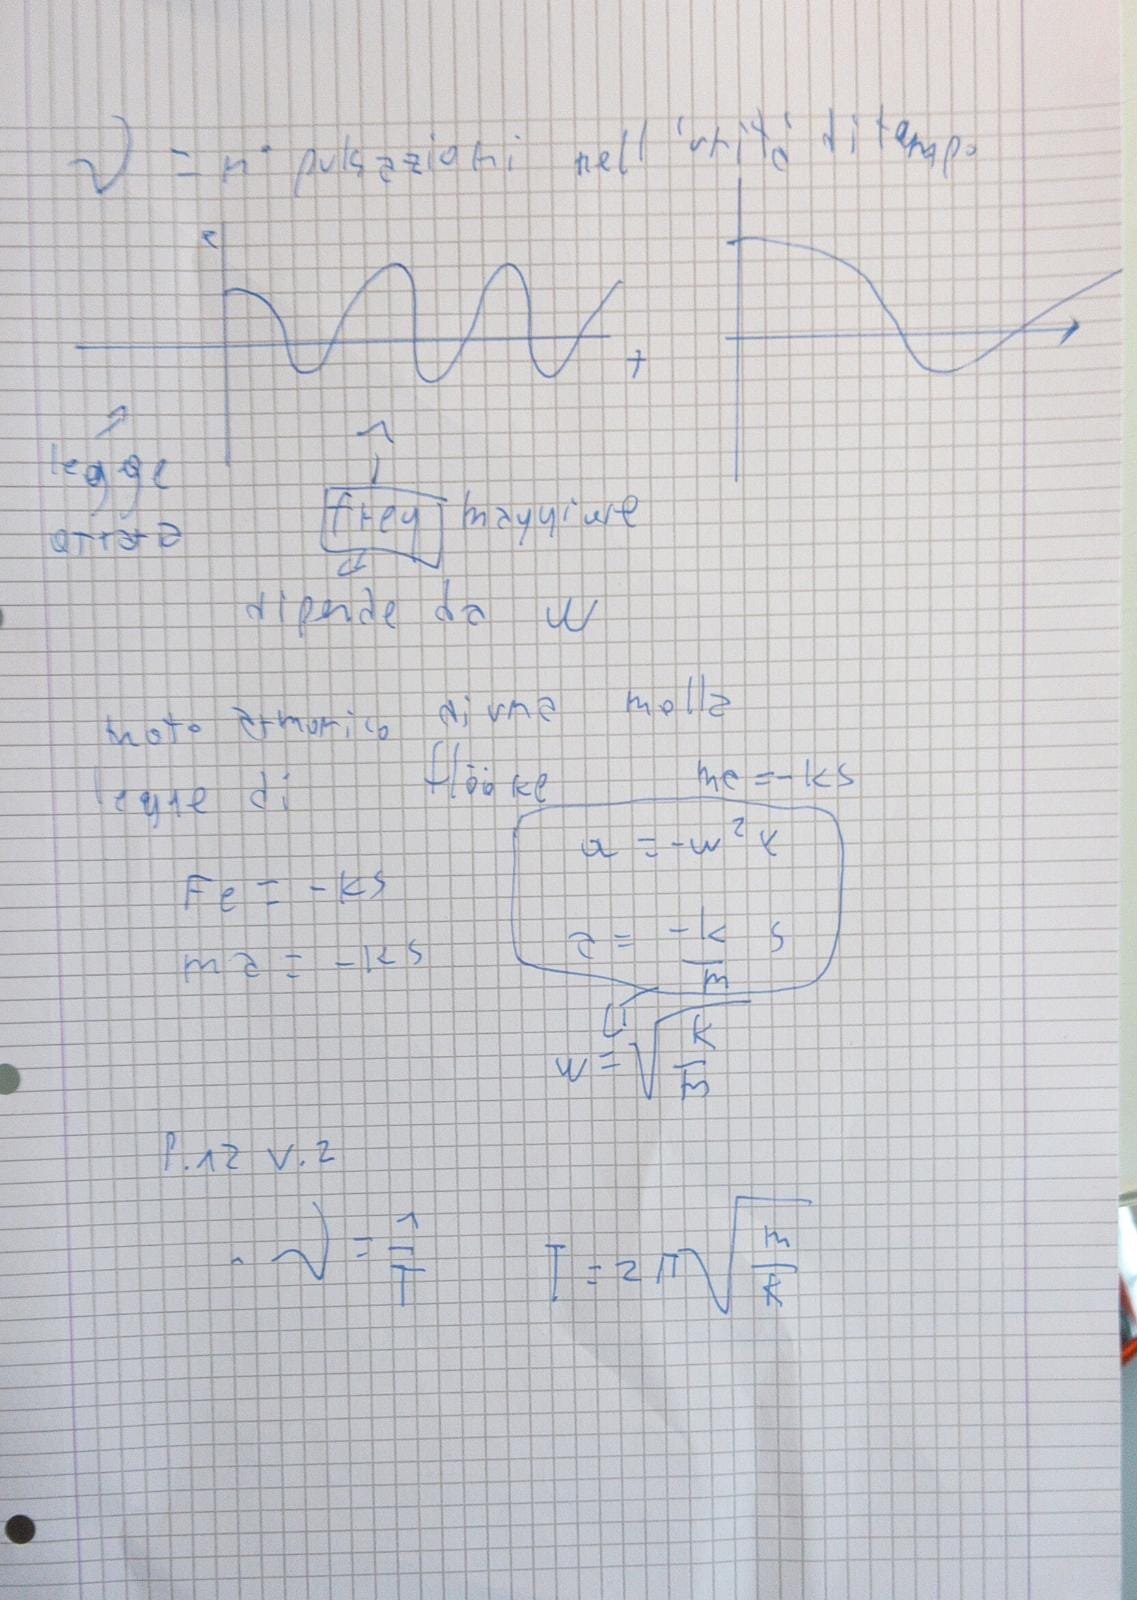 ν = n° pulsazioni nell'unità di tempo
a
t
legge
oraria
freq maggiore
dipende da w
moto armonico di una molla
legge di Hooke ma = -ks
a = -w² x
Fe = -ks
a = -k/m s
ma = -ks
w = √k/m
P.12 v.2
ν = 1/T T = 2π√m/k